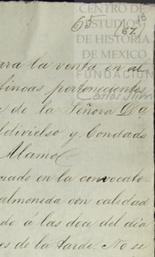 CENTRO DE
ESTUDIOS
DE HISTORIA
DE MEXICO
FUNDACIÓN
65
67
para la venta en al
fincas pertenecientes
de la Señora Da
y Condado
Alamo
en la convocato
almoneda con calidad
á las doce del dia
de la tarde. No se